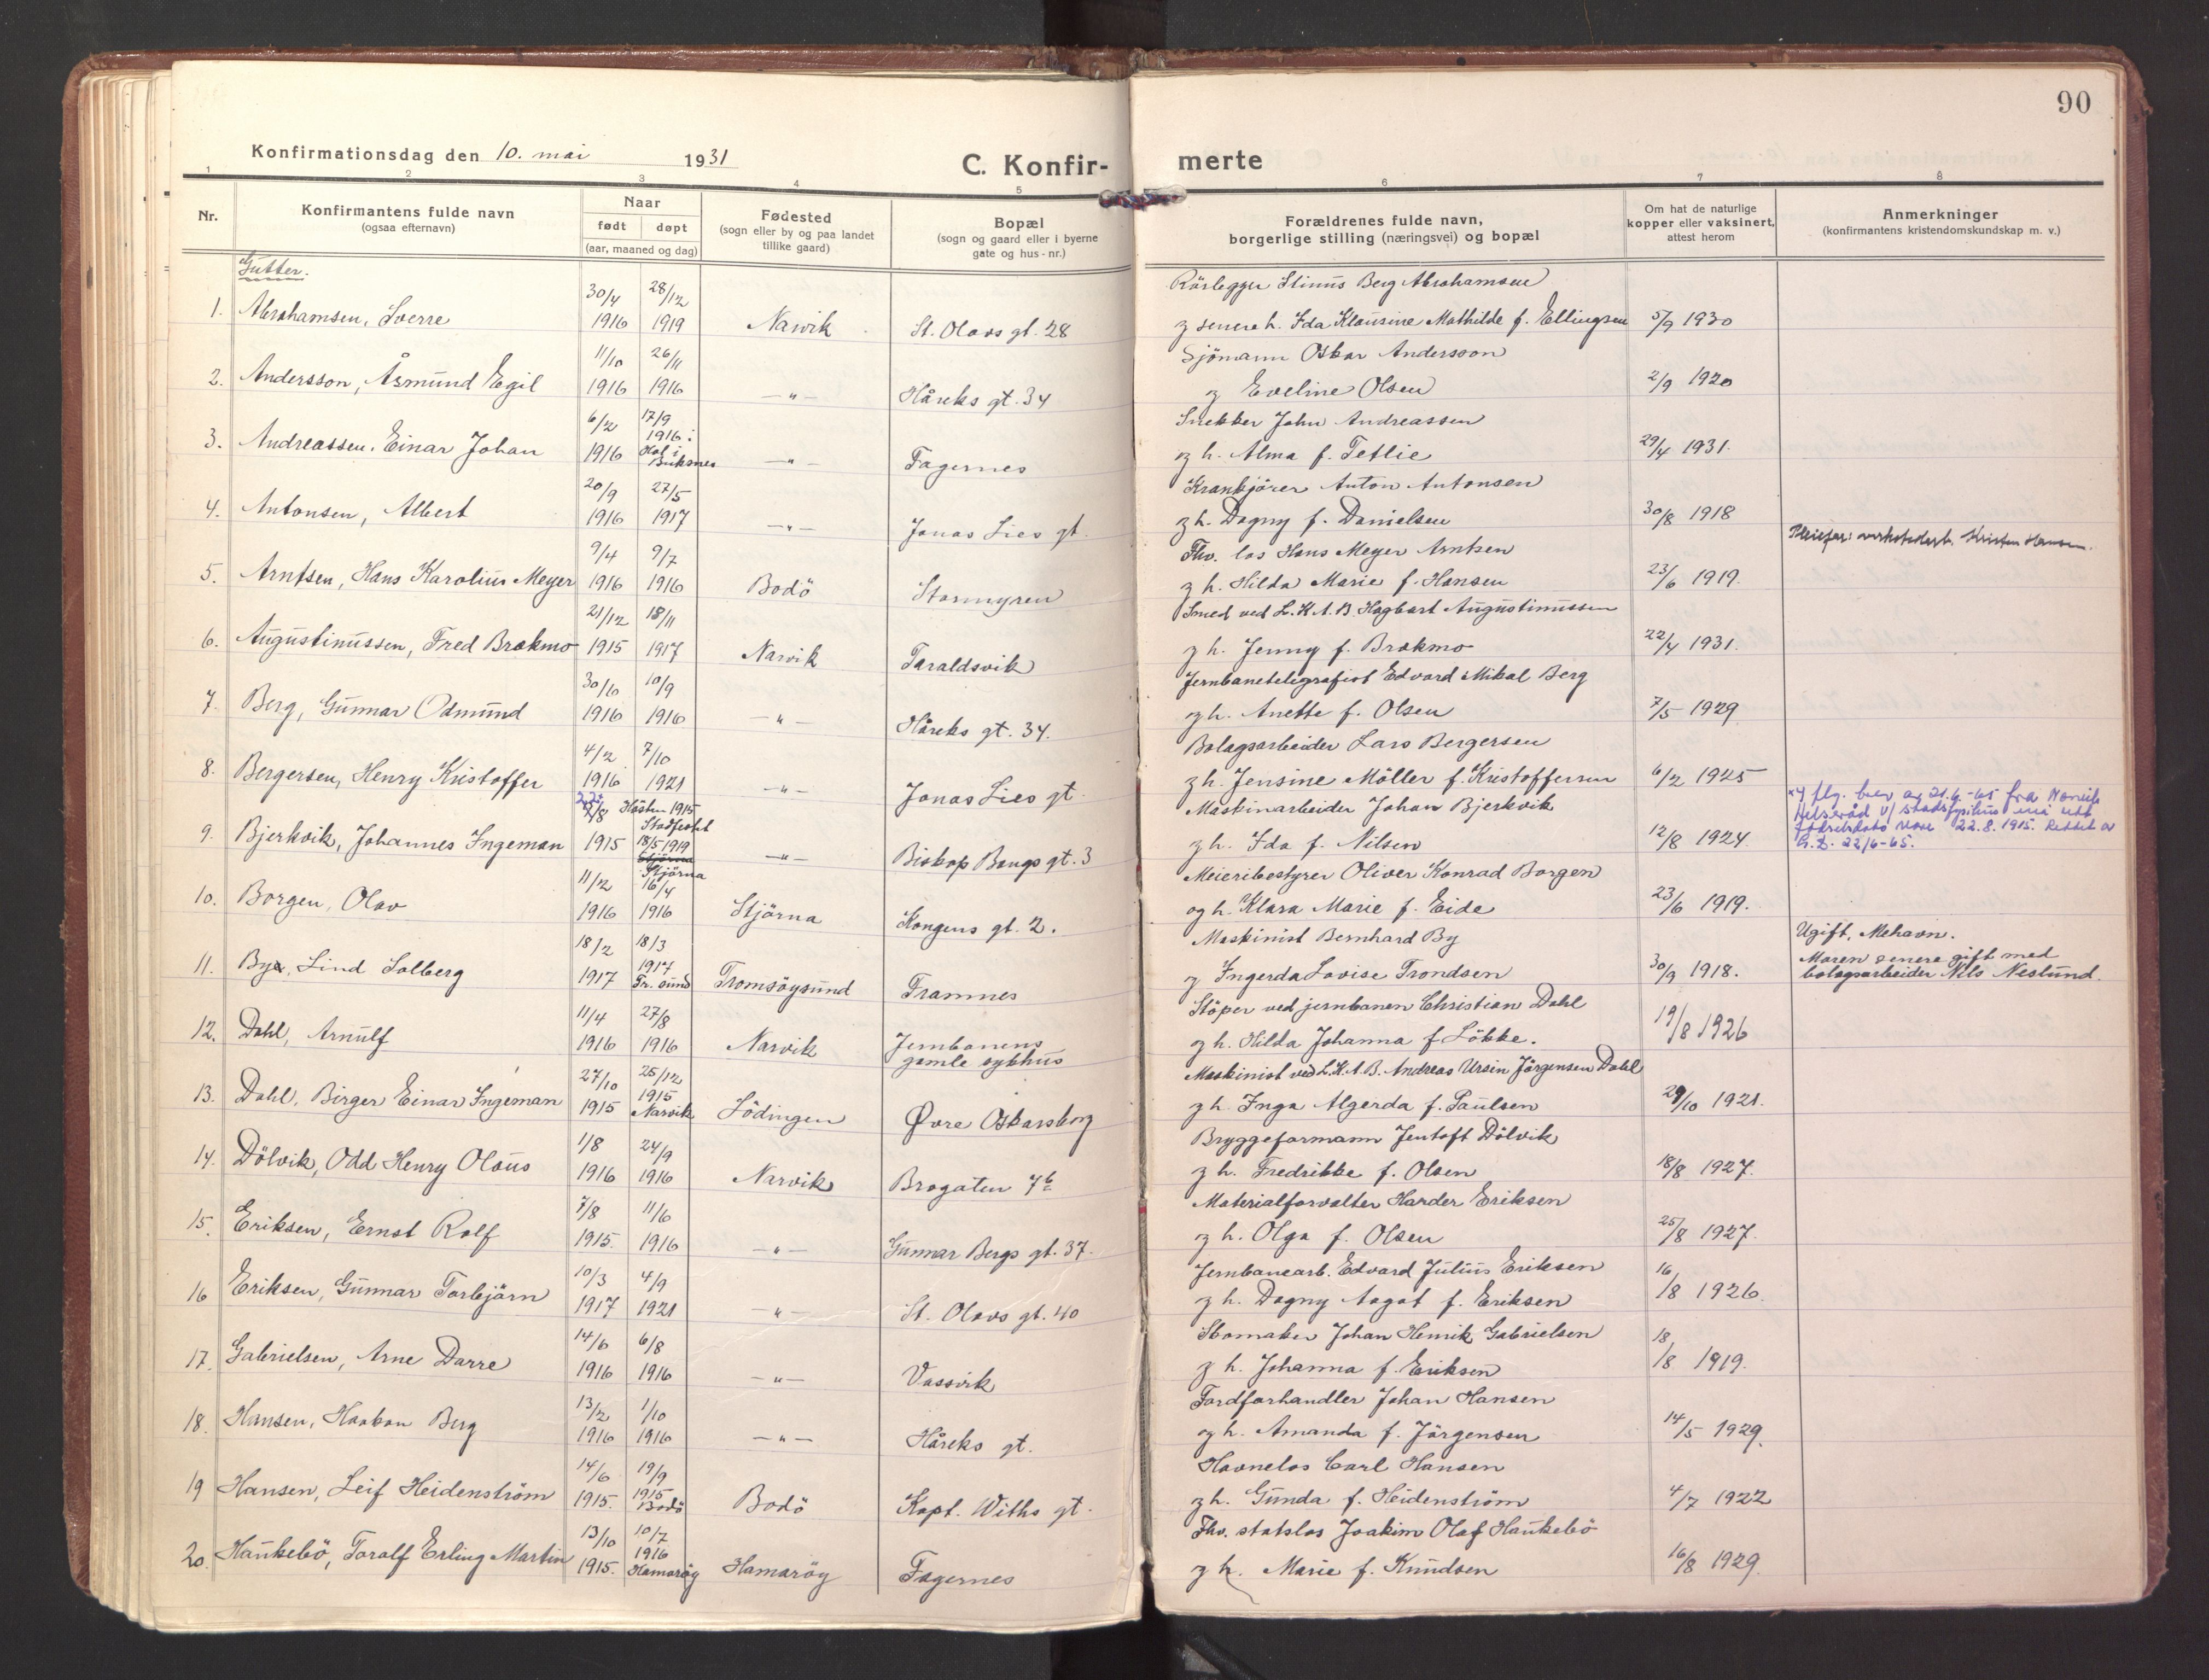 90
Konfirmationsdag den 10. mai 1931
C. Konfir-
merte
1 2 3 4 5 6 7 8
Nr.
Konfirmantens fulde navn
(ogsaa efternavn)
Naar
født døpt
(aar, maaned og dag)
Fødested
(sogn eller by og paa landet
tillike gaard)
Bopæl
(sogn og gaard eller i byerne
gate og hus-nr.)
Forældrenes fulde navn,
borgerlige stilling (næringsvei) og bopæl
Om hat de naturlige
kopper eller vaksinert,
attest herom
Anmerkninger
(konfirmantens kristendomskundskap m. v.)
Gutter.
30/4 28/12 Rörlegger Stinus Berg Abrahamsen
1. Abrahamsen, Sverre 1916 1919 Narvik St. Olavs gt. 28 og senere h. Ida Klausine Mathilde f. Ellingsen 5/9 1930
11/10 26/11 Sjömann Oskar Andersson
2. Andersson, Åsmund Egil 1916 1916 —"— Håreks gt. 34 og Eveline Olsen 2/9 1920
6/2 17/9 Snekker John Andreassen
3. Andreassen, Einar Johan 1916 1916 i Hol i Buksnes —"— Fagernes og h. Alma f. Tetlie 29/4 1931.
20/9 27/5 Krankjörer Anton Antonsen
4. Antonsen, Albert 1916 1917 —"— Jonas Lies gt. og h. Dagny f. Danielsen 30/8 1918
9/4 9/7 Fhv. los Hans Meyer Arntsen Pleiefar: verkstedarb. Kristen Hansen.
5. Arntsen, Hans Karolius Meyer 1916 1916 Bodö Stormyren og h. Hilda Marie f. Hansen 23/6 1919.
21/12 18/11 Smed ved L.K.A.B. Hagbart Augustinussen
6. Augustinussen, Fred Brakmo 1915 1917 Narvik Taraldsvik og h. Jenny f. Brakmo 22/4 1931.
30/10 10/9 Jernbanetelegrafist Edvard Mikal Berg
7. Berg, Gunnar Odmund 1916 1916 —"— Håreks gt. 34. og h. Anette f. Olsen 7/5 1929
4/2 7/10 Bolagsarbeider Lars Bergersen
8. Bergersen, Henry Kristoffer 1916 1921 —"— Jonas Lies gt. og h. Jensine Möller f. Kristoffersen 6/2 1925
22/8 Hösten 1915 Stadfestet Maskinarbeider Johan Bjerkvik
9. Bjerkvik, Johannes Ingeman 1915 18/5 1919 —"— Biskop Bangs gt. 3 og h. Ida f. Nilsen 12/8 1924.
x) flg. brev av 21.6.-65 fra Narvik
Helseråd v/ stadsfysikus
fødselsdato være 22.8.1915. Rettet
22/6-65.
11/2 Stjörna 16/4 Meieribestyrer Oliver Konrad Borgen
10. Borgen, Olav 1916 1916 Stjörna Kongens gt. 2. og h. Klara Marie f. Eide 23/6 1919.
18/2 18/3 Maskinist Bernhard By Ugift, Mehavn.
11. By, Lind Solberg 1917 1917 Tr. sund Tromsöysund Framnes og Ingerda Lovise Trondsen 30/9 1918.
Moren senere gift med
bolagsarbeider Nils Neslund.
11/4 27/8 Stöper ved jernbanen Christian Dahl
12. Dahl, Arnulf 1916 1916 Narvik Jernbanens gamle sykhus og h. Hilda Johanna f. Lökke. 19/8 1926
27/10 25/12 Maskinist ved L.K.A.B. Andreas Ursin Jörgensen Dahl
13. Dahl, Birger Einar Ingeman 1915 1915 Narvik Lödingen Øvre Oskarsborg og h. Inga Algerda f. Paulsen 29/10 1921.
1/8 24/9 Bryggeformann Jentoft Dölvik
14. Dölvik, Odd Henry Olaus 1916 1916 Narvik Brogaten 7b og h. Fredrikke f. Olsen 18/8 1927.
7/8 11/6 Materialforvalter Harder Eriksen
15. Eriksen, Ernst Rolf 1915. 1916 —"— Gunnar Bergs gt. 37. og h. Olga f. Olsen 25/8 1927.
10/3 4/9 Jernbanearb. Edvard Julius Eriksen
16 Eriksen, Gunnar Torbjörn 1917 1921 —"— St. Olavs gt. 40 og h. Dagny Aagot f. Eriksen 16/8 1926.
14/6 6/8 Skomaker Johan Henrik Gabrielsen
17. Gabrielsen, Arne Darre 1916 1916 —"— Vassvik og h. Johanna f. Eriksen 18/8 1919.
13/2 1/10 Fordforhandler Johan Hansen
18. Hansen, Haakon Berg 1916 1916 —"— Håreks gt. og h. Amanda f. Jörgensen 14/5 1929.
14/6 19/9 Havnelos Carl Hansen
19 Hansen, Leif Heidenström 1915. 1915 Bodö Bodö Kapt. Withs gt. og h. Gunda f. Heidenström 4/7 1922
13/10 10/7 Fhv. statslos Joakim Olaf Haukebö
20. Haukebö, Toralf Erling Martin 1915. 1916 Hamaröy Hamaröy Fagernes og h. Marie f. Knudsen 16/8 1929.